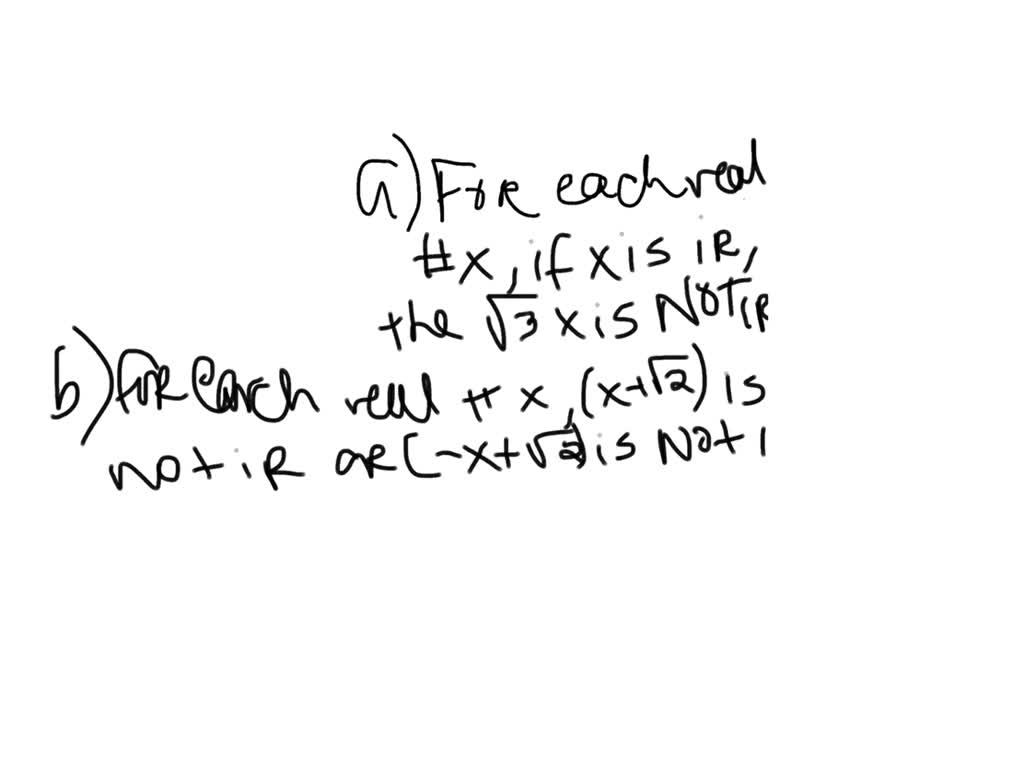 a) For each real
# x, if x is iR,
the √3 x is NOT iR
b) For each real # x, (x+√2) is
not iR oR (-x+√2) is Not i